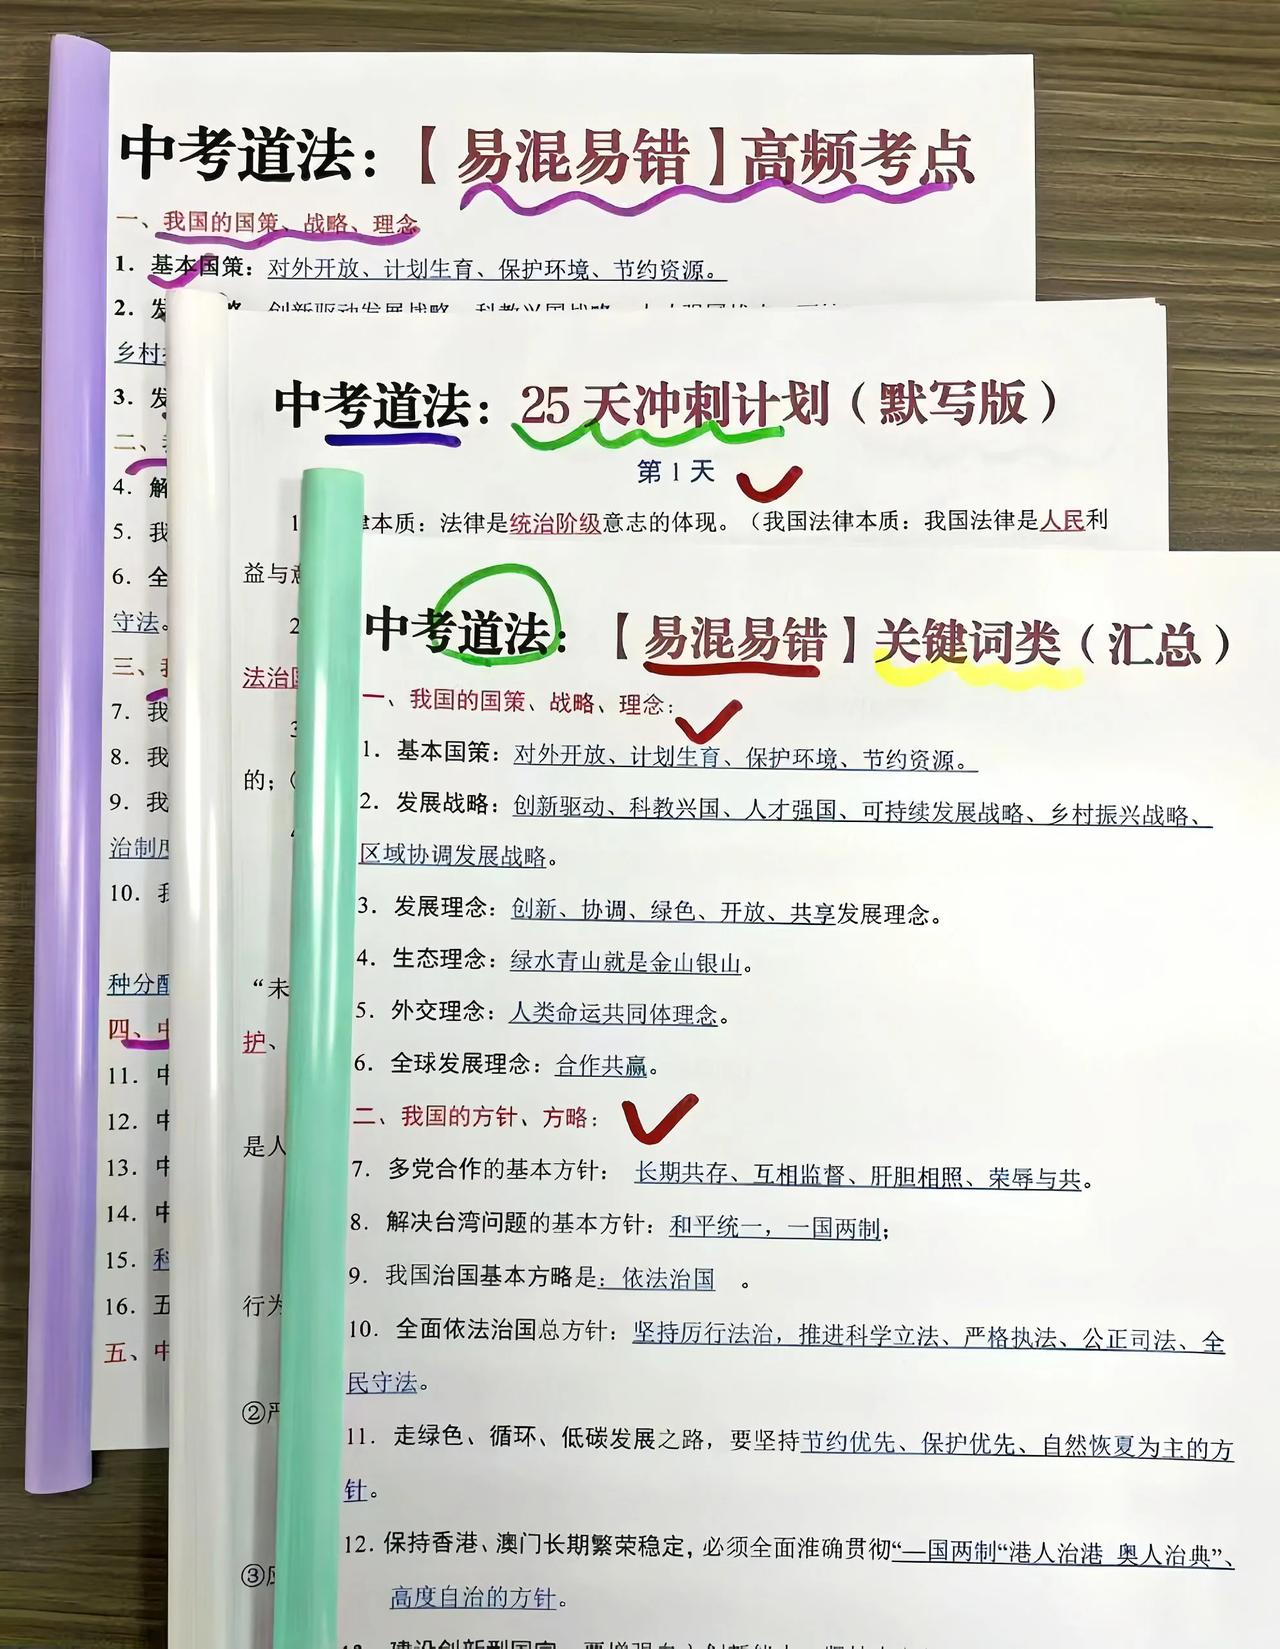 中考道法：【易混易错】高频考点
一、我国的国策、战略、理念
1. 基本国策：对外开放、计划生育、保护环境、节约资源。
2. 发
乡村
3. 发
二、
4. 解
5. 我
6. 全
守法。
三、
7. 我
8. 我
9. 我
治制度
10. 我
种分配
四、中
11. 中
12. 中
13. 中
14. 中
15. 科
16. 五
五、中
中考道法：25天冲刺计划（默写版）
第1天
1 律本质：法律是统治阶级意志的体现。（我国法律本质：我国法律是人民利
益与意
2
法治国
3
的；（
“未
护、
是人
行为
②严
③应
中考道法：【易混易错】关键词类（汇总）
一、我国的国策、战略、理念：
1. 基本国策：对外开放、计划生育、保护环境、节约资源。
2. 发展战略：创新驱动、科教兴国、人才强国、可持续发展战略、乡村振兴战略、
区域协调发展战略。
3. 发展理念：创新、协调、绿色、开放、共享发展理念。
4. 生态理念：绿水青山就是金山银山。
5. 外交理念：人类命运共同体理念。
6. 全球发展理念：合作共赢。
二、我国的方针、方略：
7. 多党合作的基本方针： 长期共存、互相监督、肝胆相照、荣辱与共。
8. 解决台湾问题的基本方针：和平统一，一国两制；
9. 我国治国基本方略是：依法治国 。
10. 全面依法治国总方针：坚持厉行法治，推进科学立法、严格执法、公正司法、全
民守法。
11. 走绿色、循环、低碳发展之路，要坚持节约优先、保护优先、自然恢复为主的方
针。
12. 保持香港、澳门长期繁荣稳定，必须全面准确贯彻“—国两制“港人治港 奥人治典”、
高度自治的方针。